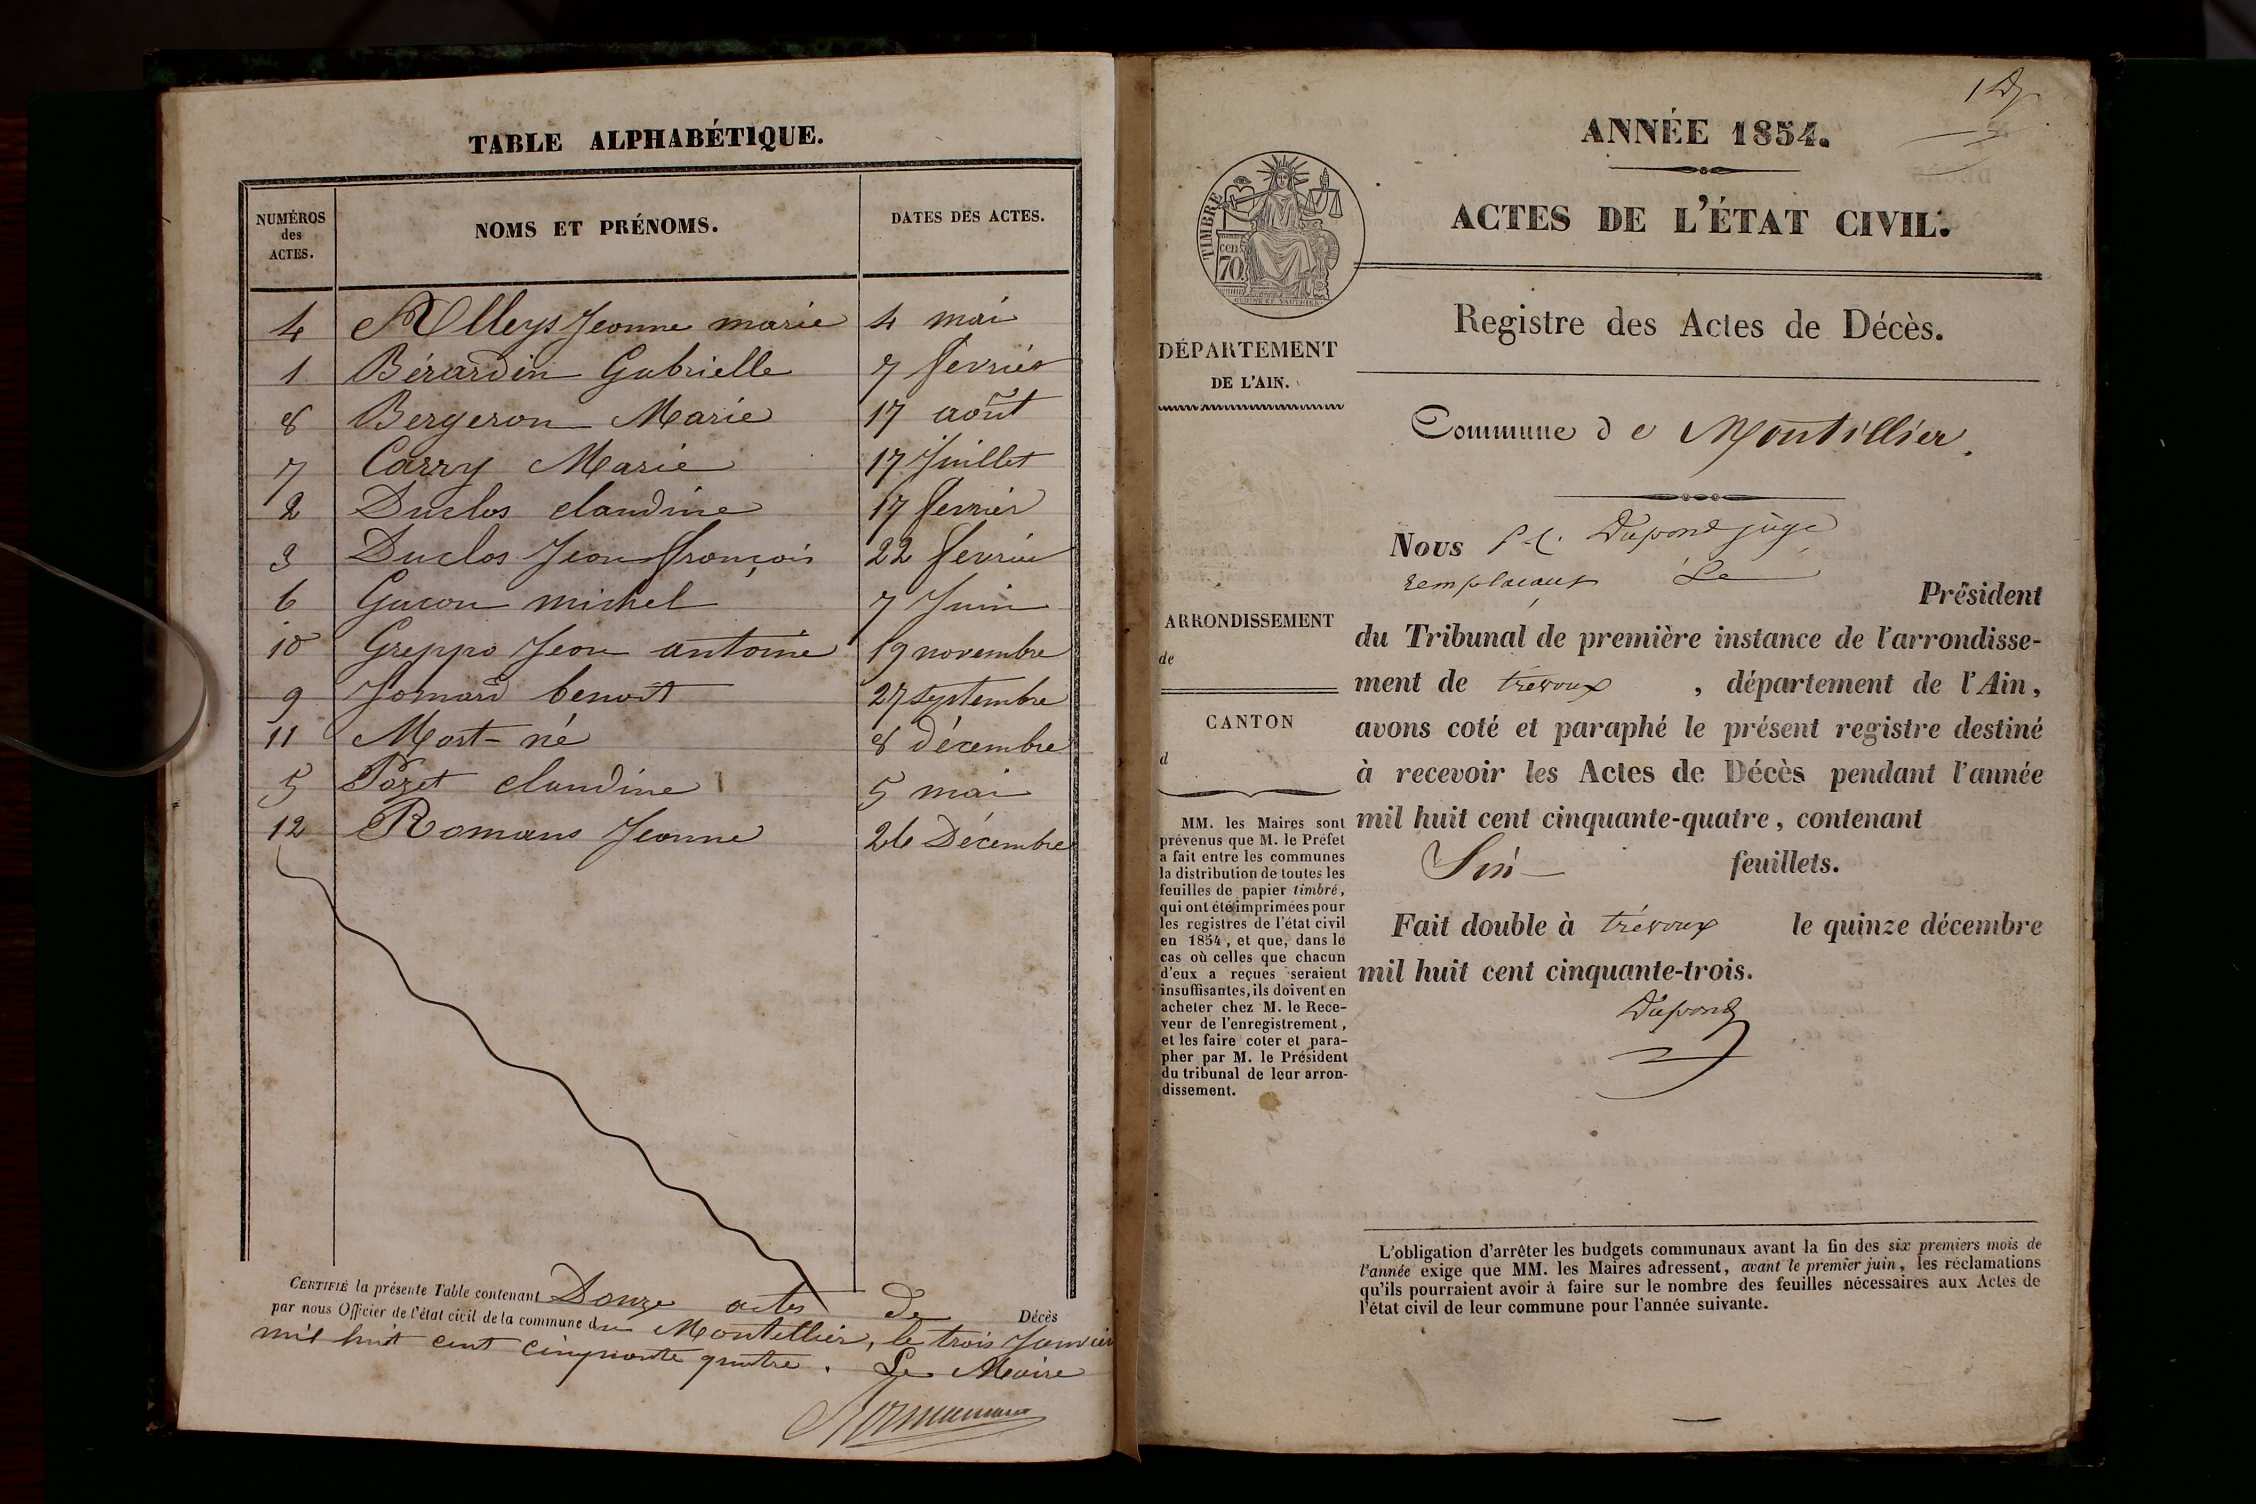 TABLE ALPHABÉTIQUE.
NUMÉROS des ACTES. NOMS ET PRÉNOMS. DATES DES ACTES.
4 Alleys Jeanne marie 4 mai
1 Bérardin Gabrielle 7 fevrier
8 Bergeron Marie 17 août
7 Carry Marie 17 Juillet
2 Duclos claudine 17 fevrier
3 Duclos Jean françois 22 fevrier
6 Gucon michel 7 Juin
10 Greppo Jean antoine 19 novembre
9 Jomard benoit 27 septembre
11 Mort-né 8 décembre
5 Pozet claudine 5 mai
12 Romans Jeanne 26 Décembre
CERTIFIÉ la présente Table contenant Douze actes de Décès
par nous Officier de l'état civil de la commune du Montellier, le trois Janvier
mil huit cent cinquante quatre. Le Maire
1
ANNÉE 1854.
ACTES DE L'ÉTAT CIVIL.
TIMBRE
cen.
70
Registre des Actes de Décès.
DÉPARTEMENT
DE L'AIN.
Commune de Montillier.
ARRONDISSEMENT
de
CANTON
d
MM. les Maires sont
prévenus que M. le Préfet
a fait entre les communes
la distribution de toutes les
feuilles de papier timbré,
qui ont été imprimées pour
les registres de l'état civil
en 1854, et que, dans le
cas où celles que chacun
d'eux a reçues seraient
insuffisantes, ils doivent en
acheter chez M. le Rece-
veur de l'enregistrement,
et les faire coter et para-
pher par M. le Président
du tribunal de leur arron-
dissement.
Nous P. C. Dupond juge
remplacant Le Président
du Tribunal de première instance de l'arrondisse-
ment de trévoux, département de l'Ain,
avons coté et paraphé le présent registre destiné
à recevoir les Actes de Décès pendant l'année
mil huit cent cinquante-quatre, contenant
Six feuillets.
Fait double à trévoux le quinze décembre
mil huit cent cinquante-trois.
Dupond
L'obligation d'arrêter les budgets communaux avant la fin des six premiers mois de
l'année exige que MM. les Maires adressent, avant le premier juin, les réclamations
qu'ils pourraient avoir à faire sur le nombre des feuilles nécessaires aux Actes de
l'état civil de leur commune pour l'année suivante.